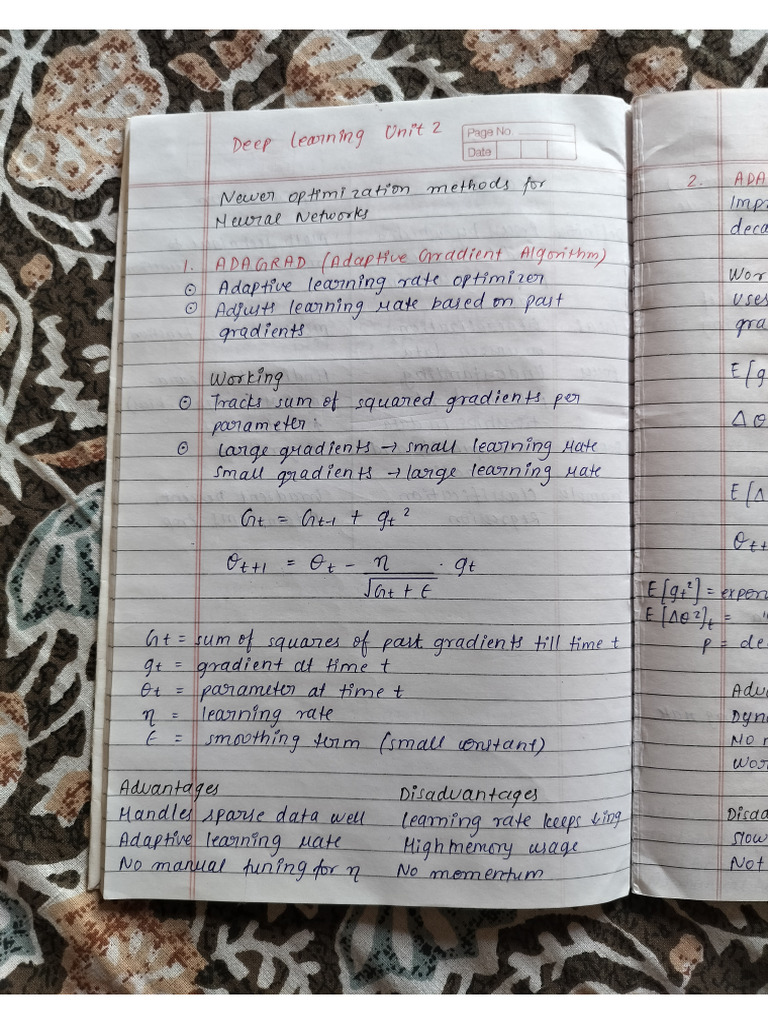 Deep Learning Unit 2
Page No.
Date
Newer optimization methods for
Neural Networks
1. ADAGRAD (Adaptive Gradient Algorithm)
⊙ Adaptive learning rate optimizer
⊙ Adjusts learning rate based on past
gradients
Working
⊙ Tracks sum of squared gradients per
parameter.
⊙ Large gradients → small learning rate
small gradients → large learning rate
Gt = Gt-1 + gt²
θt+1 = θt - η / √Gt + ϵ · gt
Gt = sum of squares of past gradients till time t
gt = gradient at time t
θt = parameter at time t
η = learning rate
ϵ = smoothing term (small constant)
Advantages Disadvantages
Handles sparse data well Learning rate keeps ↓ing
Adaptive learning rate High memory usage
No manual tuning for η No momentum
2. ADA
Impr
deca
Wor
Uses
gra
E[g
Δθ
E[Δ
θt+
E[gt²] = expon
E[Δθ²]t =
p = de
Adva
Dyn
No
Wor
Disad
Slow
Not